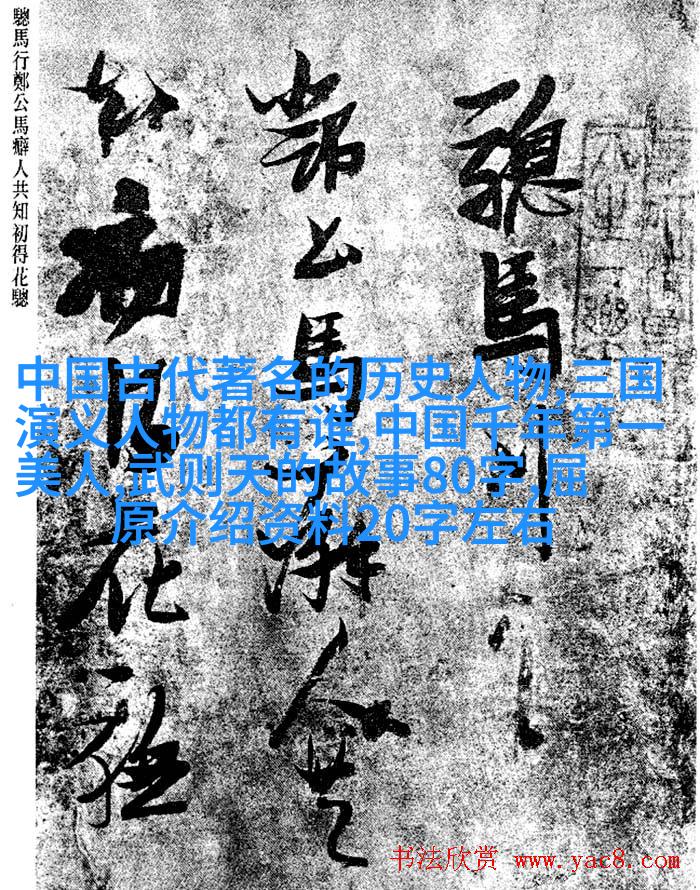 驄馬行
鄭公馬癖人共
知初得花驄
驄馬行鄭公馬癖人共知初得花驄
中国古代著名的历史人物,三国
演义人物都有谁,中国千年第一
美人,武则天的故事80字,屈
原介绍资料20字左右
书法欣赏 www.yac8.com